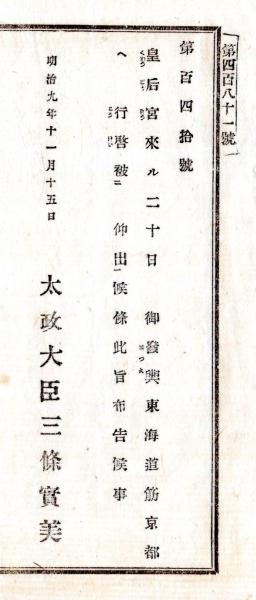 第四百八十一號
第百四拾號
皇后宮來ル二十日 御發輿東海道筋京都
ヘ 行啓被二 仰出一候條此旨布告候事
明治九年十一月十五日
太政大臣三條實美